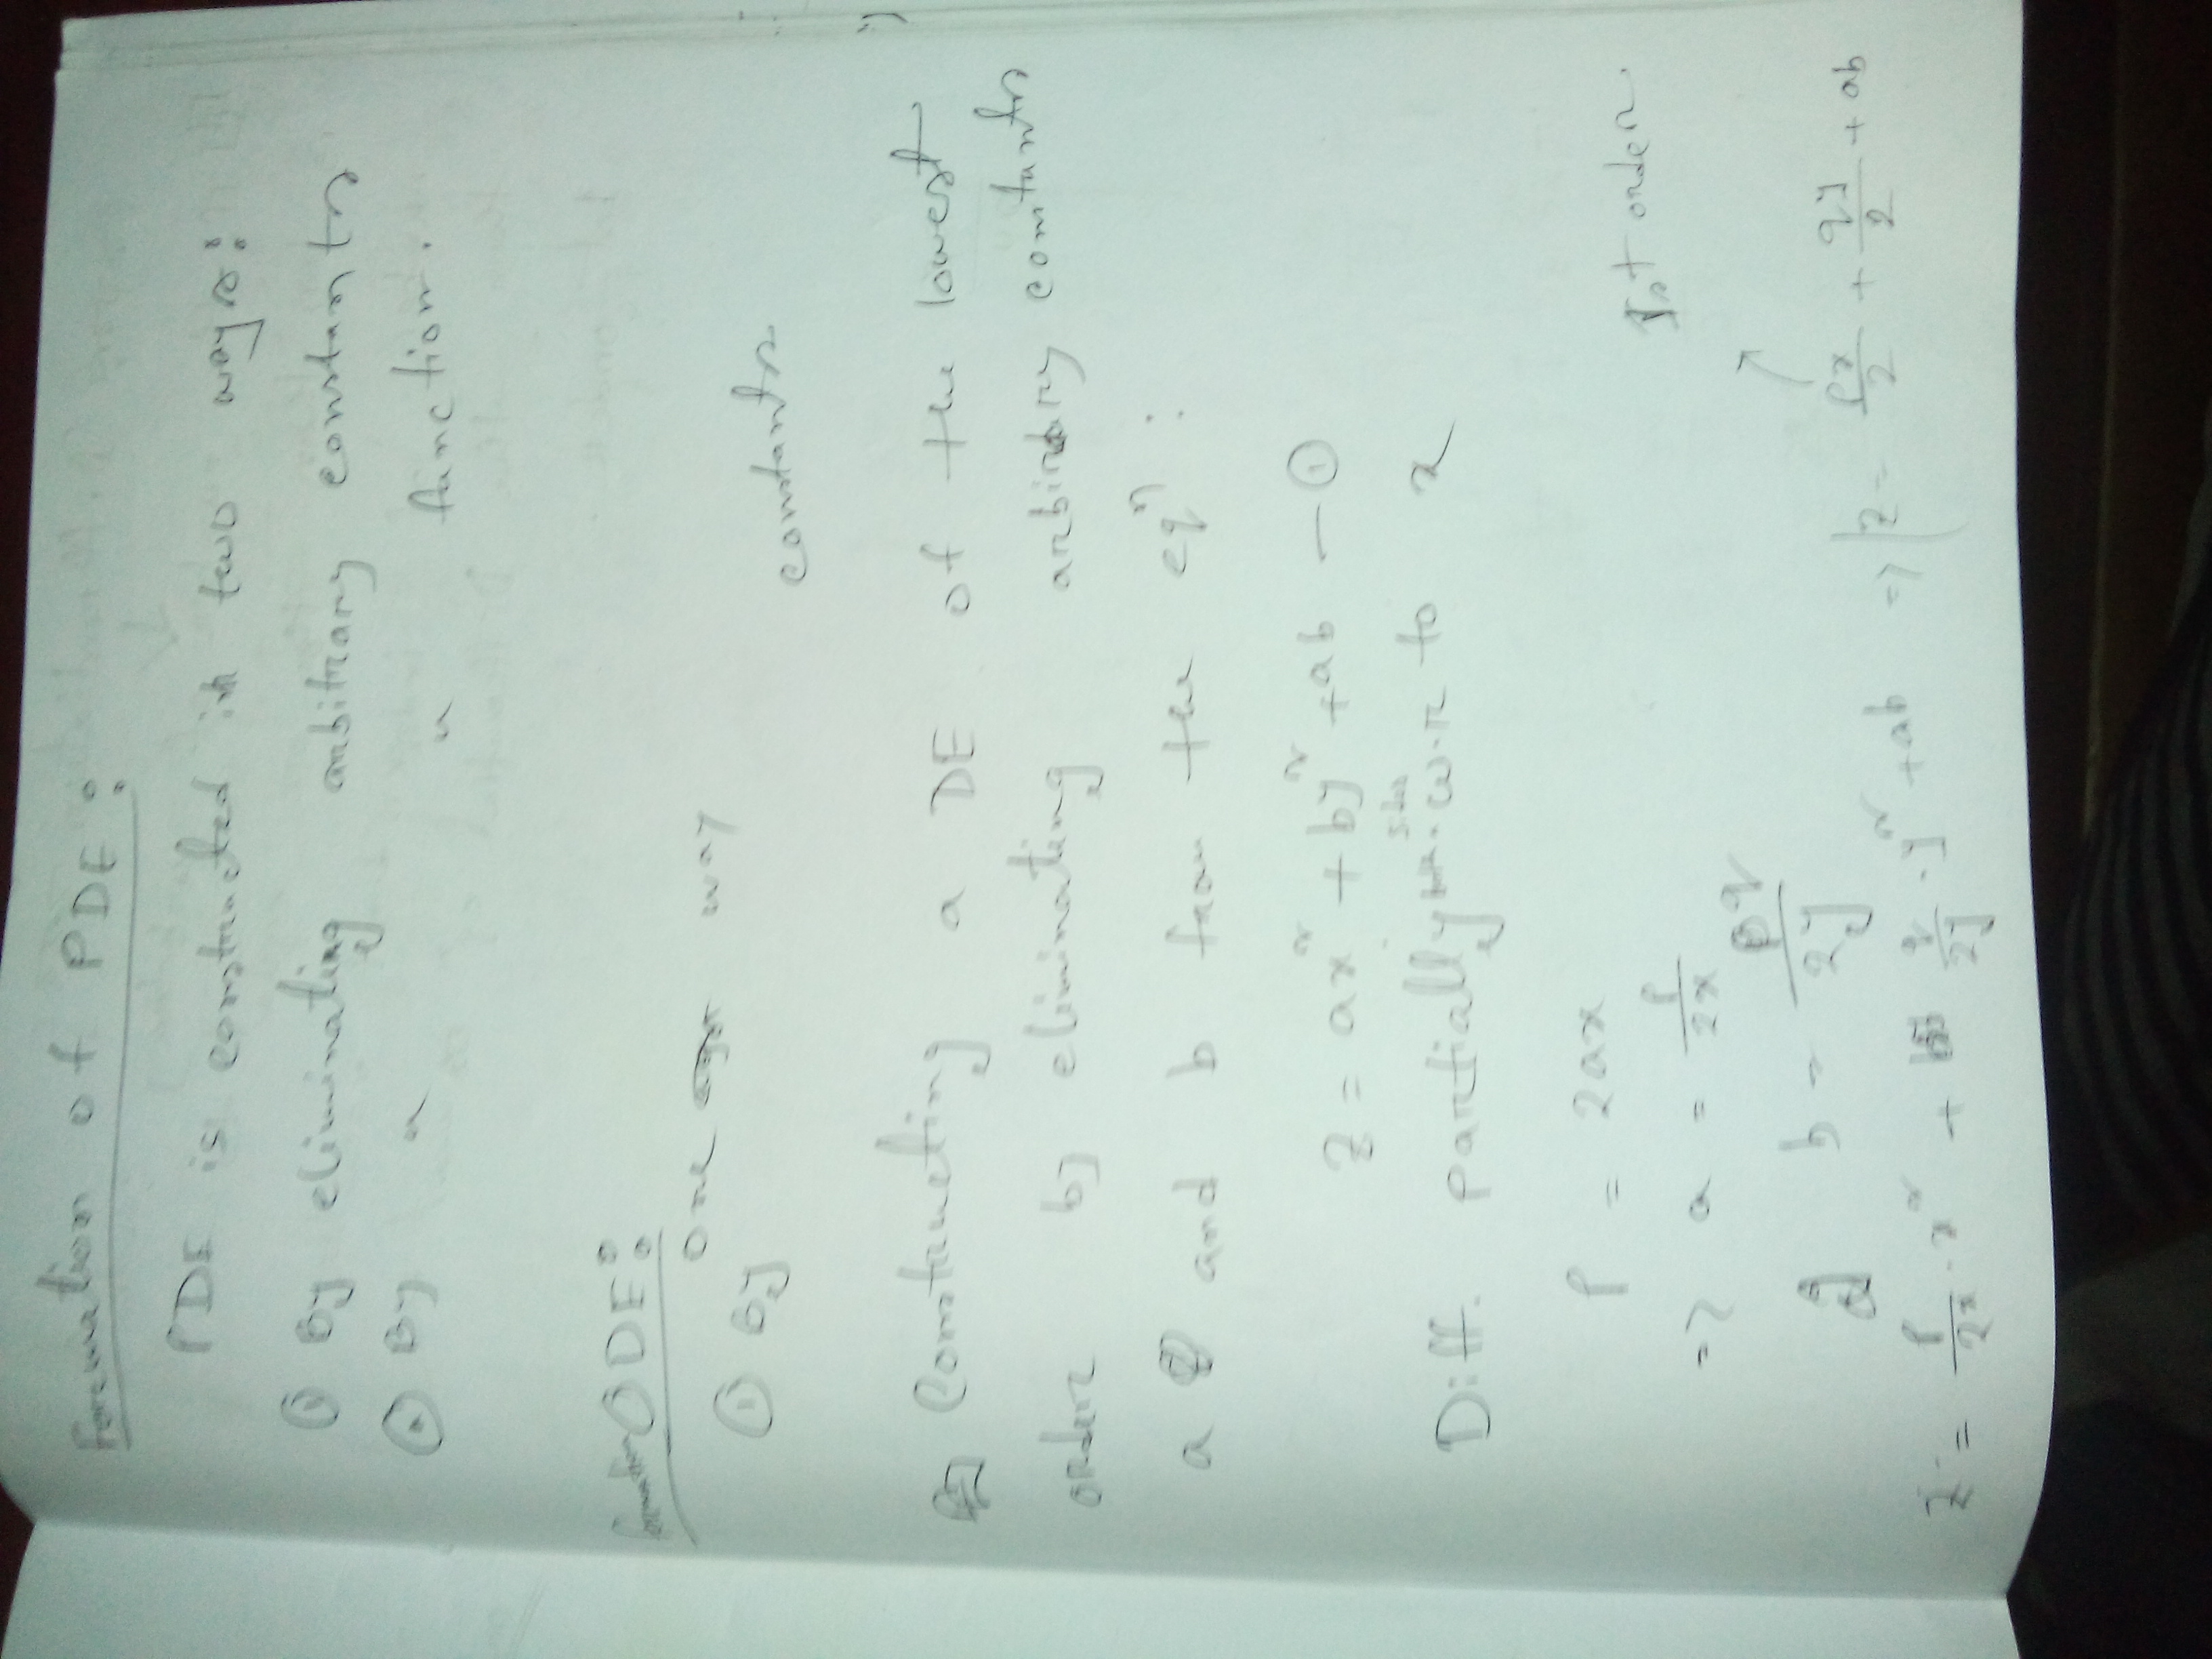 Formation of PDE:
PDE is constructed in two ways:
① By eliminating arbitrary constants
② By " " function.
Formation ODE:
One way
① By constants
Constructing a DE of the lowest
order by eliminating arbirary constants
a and b from the eqⁿ:
z = ax² + by² + ab — ①
Diff. partially b.s. w.r to x
sides
p = 2ax
=> a = p/2x
1st order
b = q/2y
z = p/2x · x² + q/2y · y² + ab => z = px/2 + qy/2 + ab